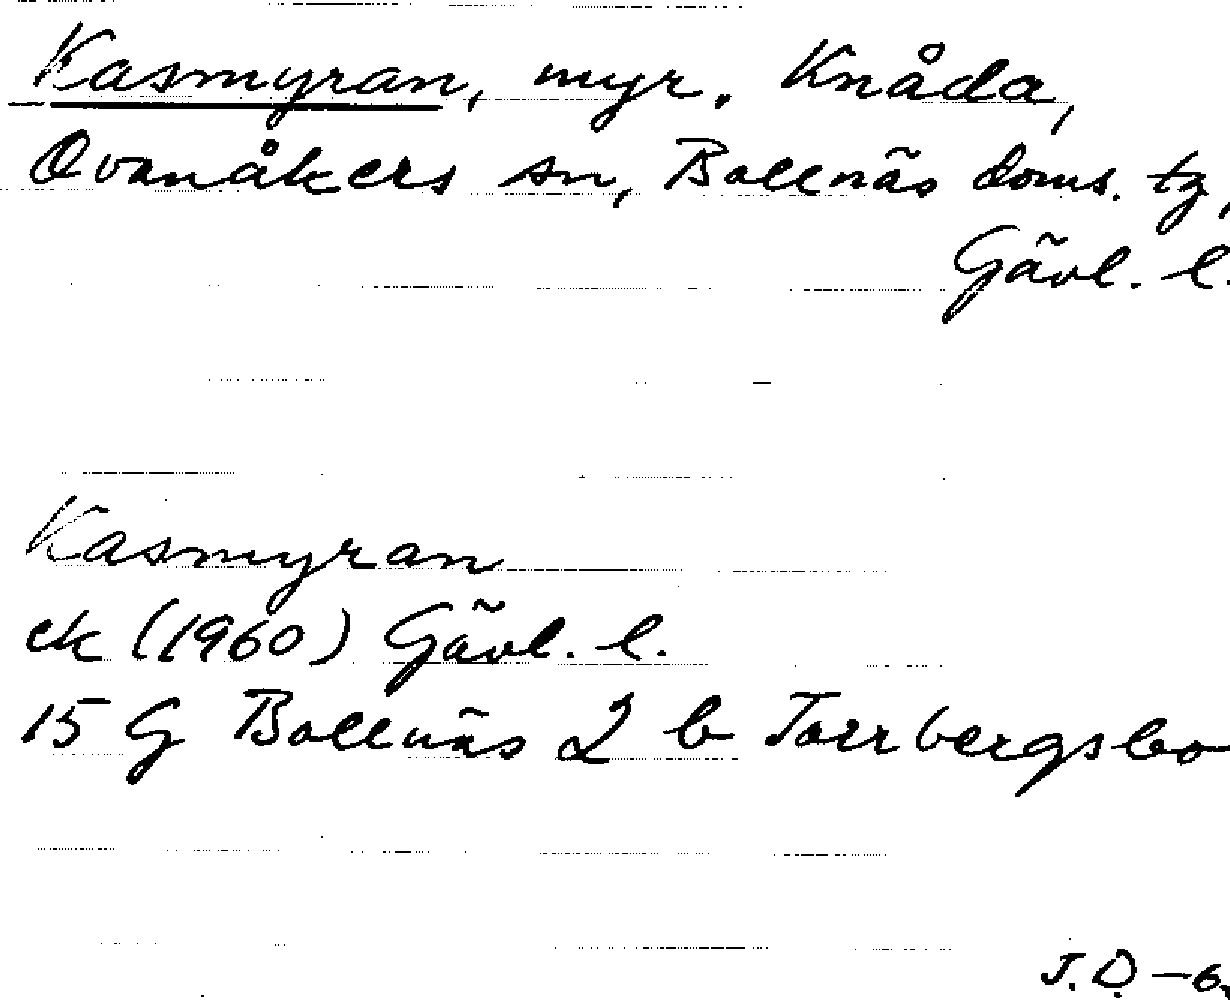 Kasmyran, myr. Knåda,
Ovanåkers sn, Bollnäs doms. tg,
Gävl. l.
Kasmyran
ek (1960) Gävl. l.
15 G Bollnäs 2 b Torrbergsbo
J.D. -6